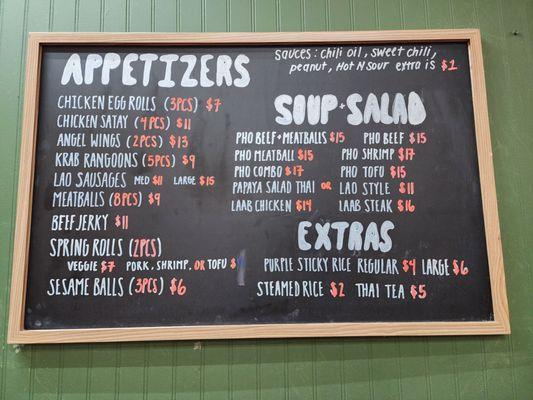 SAUCES : CHILI OIL, SWEET CHILI,
PEANUT, HOT N SOUR EXTRA IS $1
APPETIZERS
CHICKEN EGG ROLLS (3PCS) $7
CHICKEN SATAY (4PCS) $11
ANGEL WINGS (2PCS) $13
KRAB RANGOONS (5PCS) $9
LAO SAUSAGES MED $11 LARGE $15
MEATBALLS (8PCS) $9
BEEF JERKY $11
SPRING ROLLS (2PCS)
VEGGIE $7 PORK, SHRIMP, OR TOFU
SESAME BALLS (3PCS) $6
SOUP + SALAD
PHO BEEF + MEATBALLS $15 PHO BEEF $15
PHO MEATBALL $15 PHO SHRIMP $17
PHO COMBO $17 PHO TOFU $15
PAPAYA SALAD THAI OR LAO STYLE $11
LAAB CHICKEN $14 LAAB STEAK $16
EXTRAS
PURPLE STICKY RICE REGULAR $4 LARGE $6
STEAMED RICE $2 THAI TEA $5